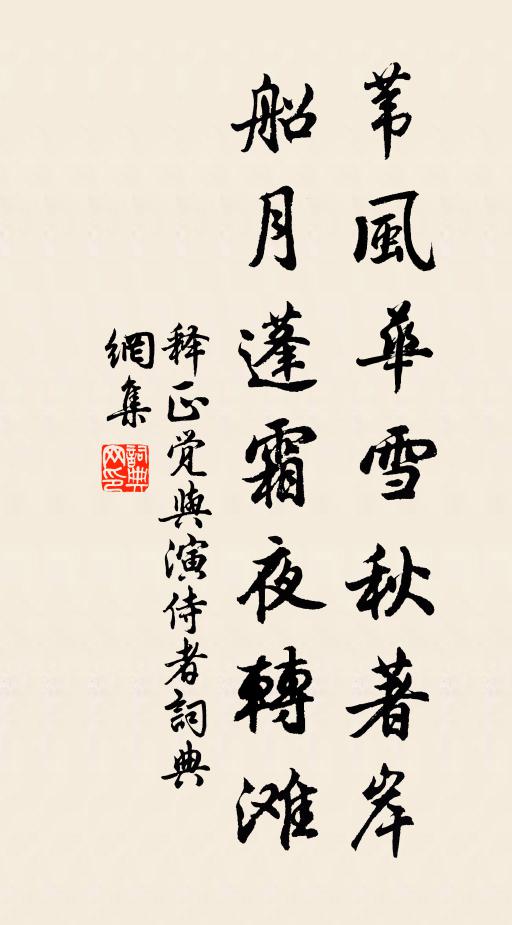 苇風華雪秋著岸
船月蓬霜夜轉滩
释正觉與演侍者詞典
網集
詞典網印